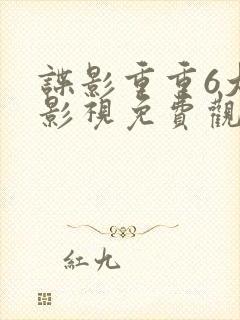 諜影重重6大
影視免費觀
紅九